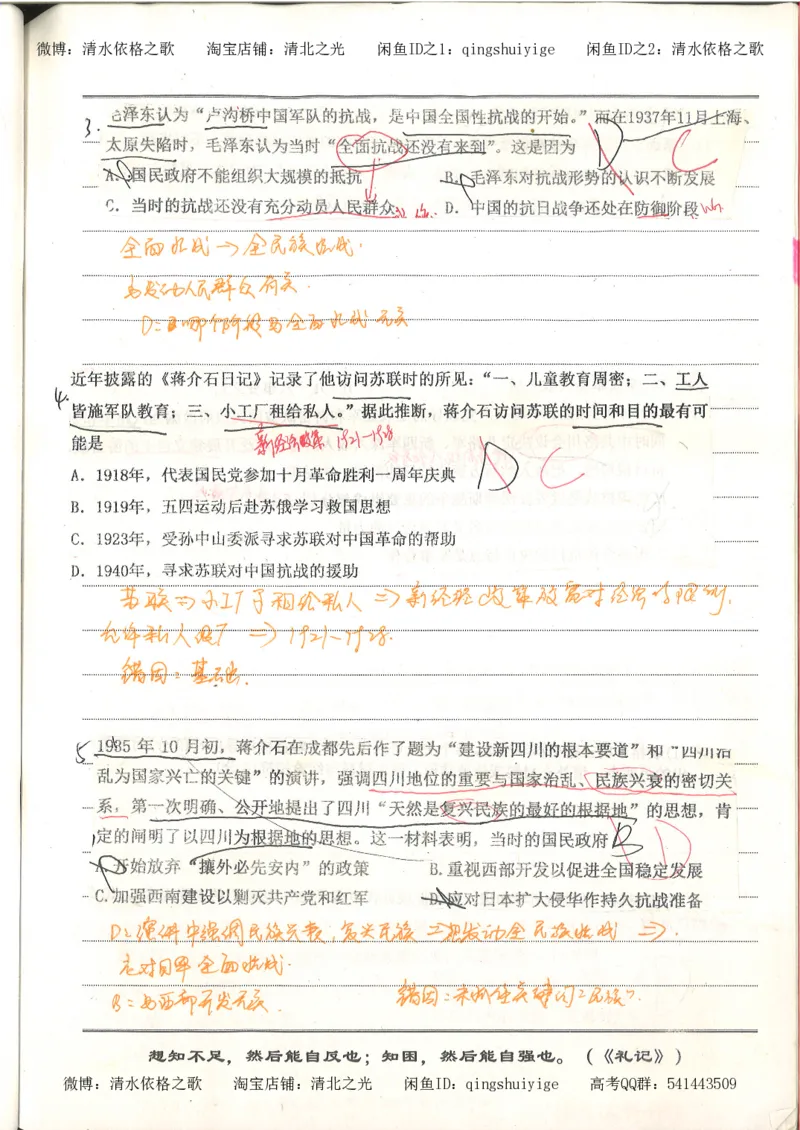 微博：清水依格之歌 淘宝店铺：清北之光 闲鱼ID之1：qingshuiyige 闲鱼ID之2：清水依格之歌
3. 毛泽东认为“卢沟桥中国军队的抗战，是中国全国性抗战的开始。”而在1937年11月上海、
太原失陷时，毛泽东认为当时“全面抗战还没有来到”。这是因为 D C
A. 国民政府不能组织大规模的抵抗 B. 毛泽东对抗战形势的认识不断发展
C. 当时的抗战还没有充分动员人民群众 D. 中国的抗日战争还处在防御阶段
全面抗战→全民族抗战.
与发动人民群众有关.
D=哪个阶段与全面抗战无关
4. 近年披露的《蒋介石日记》记录了他访问苏联时的所见：“一、儿童教育周密；二、工人
皆施军队教育；三、小工厂租给私人。”据此推断，蒋介石访问苏联的时间和目的最有可
能是 新经济政策 1921-1928
A. 1918年，代表国民党参加十月革命胜利一周年庆典 D C
B. 1919年，五四运动后赴苏俄学习救国思想
C. 1923年，受孙中山委派寻求苏联对中国革命的帮助
D. 1940年，寻求苏联对中国抗战的援助
苏联的小工厂租给私人⇒新经济政策放宽对经济的限制,
允许私人设厂⇒1921-1928.
错因：基础.
5 1935 年 10 月初，蒋介石在成都先后作了题为“建设新四川的根本要道”和“四川治
乱为国家兴亡的关键”的演讲，强调四川地位的重要与国家治乱、民族兴衰的密切关
系，第一次明确、公开地提出了四川“天然是复兴民族的最好的根据地”的思想，肯
定的阐明了以四川为根据地的思想。这一材料表明，当时的国民政府 B D
A.开始放弃“攘外必先安内”的政策 B.重视西部开发以促进全国稳定发展
C.加强西南建设以剿灭共产党和红军 D.应对日本扩大侵华作持久抗战准备
D=演讲中强调民族兴衰,复兴民族=想发动全民族抗战⇒
应对日军全面抗战.
B=与西部开发无关 错因：未抓住关键词“民族”.
想知不足，然后能自反也；知困，然后能自强也。（《礼记》）
微博：清水依格之歌 淘宝店铺：清北之光 闲鱼ID：qingshuiyige 高考QQ群：541443509